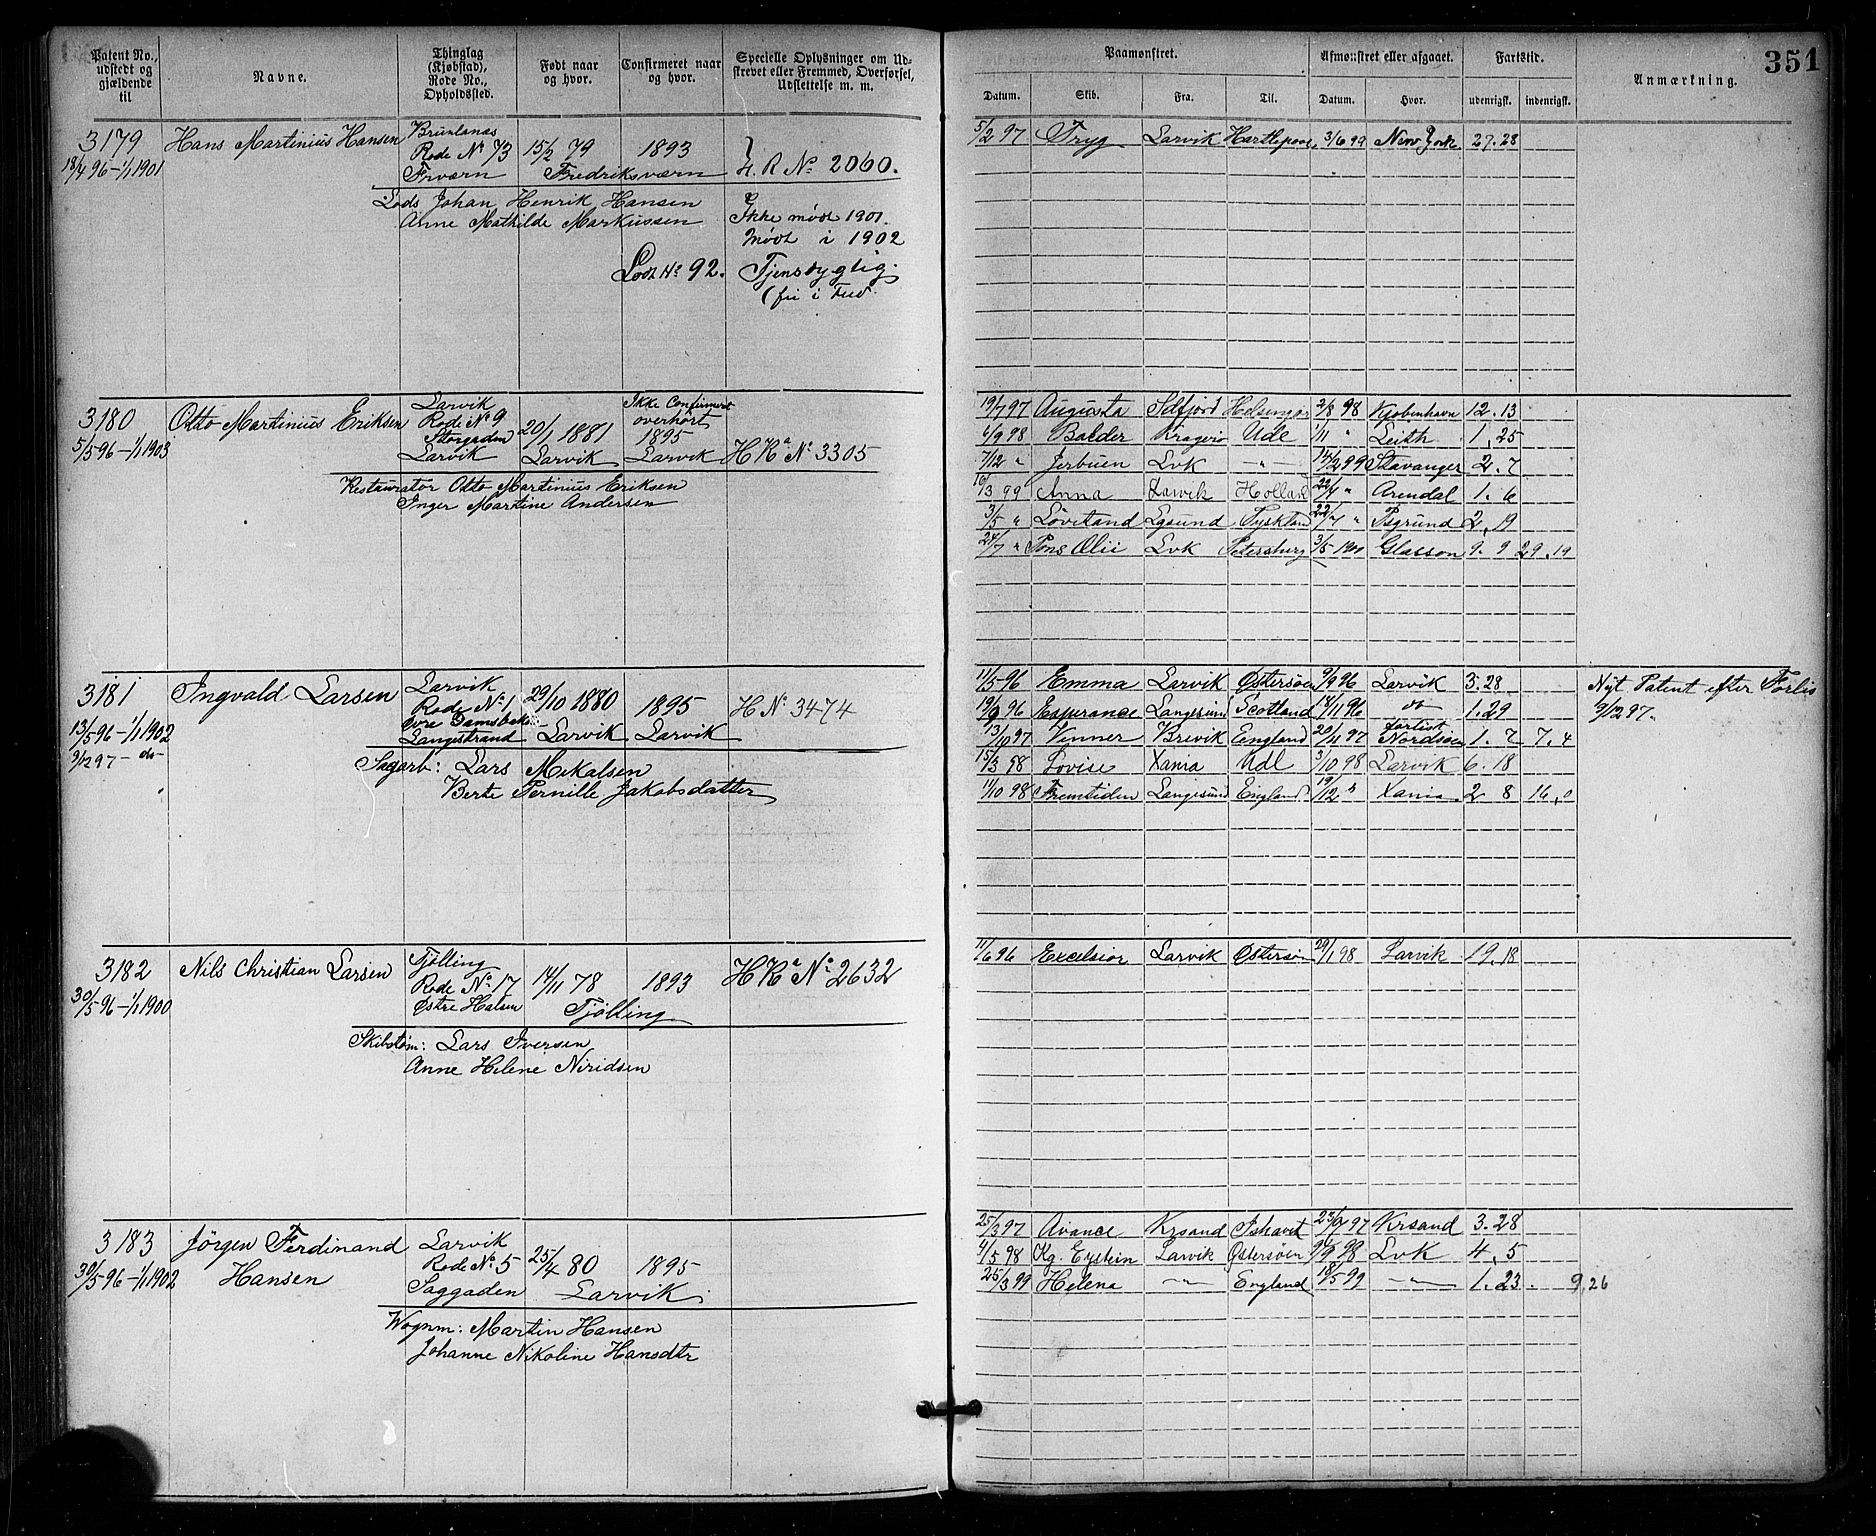 351
Patent No., udstedt og gjældende til
Navne.
Thinglag (Kjøbstad), Rode No., Opholdssted.
Født naar og hvor.
Confirmeret naar og hvor.
Specielle Oplysninger om Udskrevet eller Fremmed, Overførsel, Udslettelse m. m.
Paamønstret.
Afmønstret eller afgaaet.
Fartstid.
Anmærkning.
Datum. Skib. Fra. Til. Datum. Hvor. udenrigsk. indenrigsk.
3179 Hans Martinius Hansen
18/4 96-1/1 1901
Brunlanæs
Rode No 73
Frværn
15/2 79 1893
Fredriksværn
H. R No 2060.
Lods Johan Henrik Hansen
Anne Mathilde Markussen
Ikke mødt 1901.
Mødt i 1902
Lodt No 92. Tjenstdygtig.
5/2 97 Tryg Larvik Hartlepool 3/6 99 New York 27.28
3180 Otto Martinius Eriksen
5/5 96-1/1 1903
Larvik
Rode No 9
Storgaden
Larvik
20/1 1881
Larvik
Ikke Confirmert
overhørt
1895
Larvik
H Ra No 3305
Restauratør Otto Martinius Eriksen
Inger Martine Andersen
19/7 97 Augusta Idfjord Helsingør 2/8 98 Kjøbenhavn 12.13
6/9 98 Balder Kragerø Ude 1/11 " Leith 1.25
7/12 " Jerbuen Lvk -"- 14/2 99 Stavanger 2.7
16/3 99 Anna Larvik Holland 22/4 " Arendal 1.6
3/5 " Løvstand Lgsund Tyskland 22/7 " Psgrund 2.19
24/7 " Pons Ælii Lvk Petersburg 3/5 1900 Glasson 9.9 29.19
3181 Ingvald Larsen
13/5 96-1/1 1902
9/12 97- do-
Larvik
Rode No 1
Øvre Damsbakke
Langestrand
29/10 1880
Larvik
1895
Larvik
H No 3474
Sagarb: Lars Mikalsen
Berte Pernille Jakobsdatter
11/5 96 Emma Larvik Østersøen 9/9 96 Larvik 3.28
Nyt Patent efter Forlis
9/12 97.
19/9 96 Esperance Langesund Scotland 18/11 96 do 1.29
13/10 97 Venner Brevik England 20/11 97 forlist Nordsøen 1.7 7.4
15/3 98 Lovise Xania Udl 3/10 98 Larvik 6.18
11/10 98 Fremtiden Langesund England 19/12 " Xania 2 8 16.0
3182 Nils Christian Larsen
30/5 96-1/1 1900
Tjølling
Rode No 17
Østre Halsen
14/11 78 1893
Tjølling
H Ra No 2632
Skibstøm: Lars Iversen
Anne Helene Niridsen
11/6 96 Excelsior Larvik Østersøn 29/1 98 Larvik 19.18
3183 Jörgen Ferdinand
Hansen
30/5 96-1/1 1902
Larvik
Rode No 5
Saggaden
25/4 80 1895
Larvik
Wognm: Martin Hansen
Johanne Nikoline Hansdtr
25/3 97 Avance Krsand Ishavet 23/7 97 Krsand 3.28
4/5 98 Kg. Eystein Larvik Østersøen 9/9 98 Lvk 4.5
25/3 99 Helena -"- England 18/5 99 -"- 1.23. 9,26